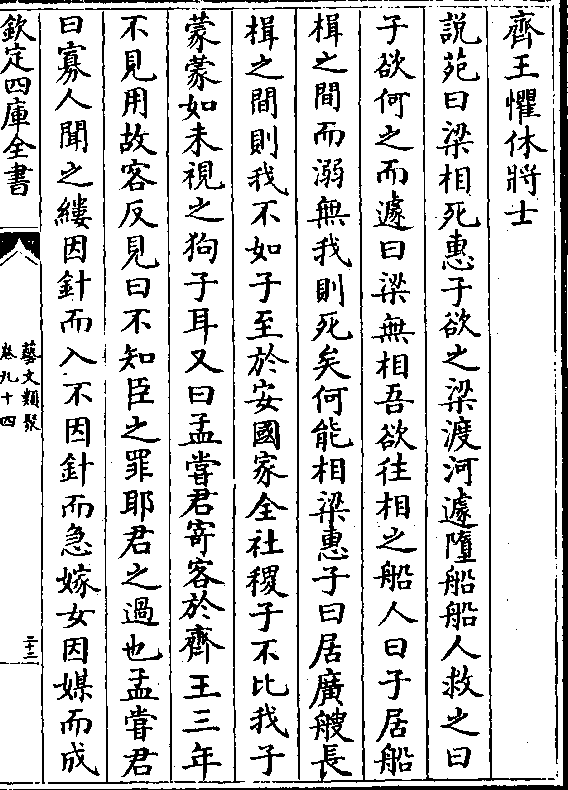 齊王懼休將士
説苑曰梁相死惠子欲之梁渡河遽墮船船人救之曰
子欲何之而遽曰梁無相吾欲往相之船人曰子居船
楫之間而溺無我則死矣何能相梁惠子曰居廣艘長
楫之間則我不如子至於安國家全社稷子不比我子
蒙蒙如未視之狗子耳又曰孟嘗君寄客於齊王三年
不見用故客反見曰不知臣之罪耶君之過也孟嘗君
曰寡人聞之縷因針而入不因針而急嫁女因媒而成
欽定四庫全書
藝文類聚
卷九十四
二十三